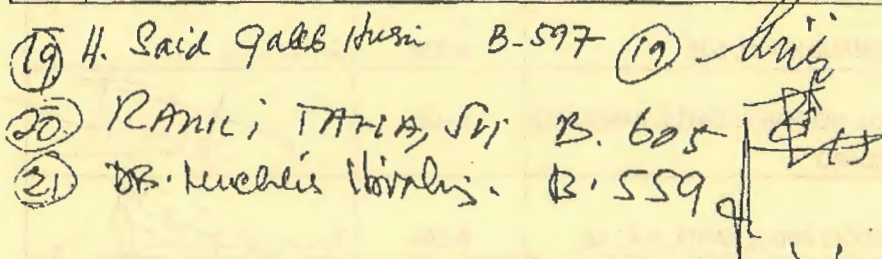 19 H. Said Galeb Husin B-597 19
20. RAMLI TAHA, SH B. 605
21 DB. Muchlis Ibrahim. B. 559